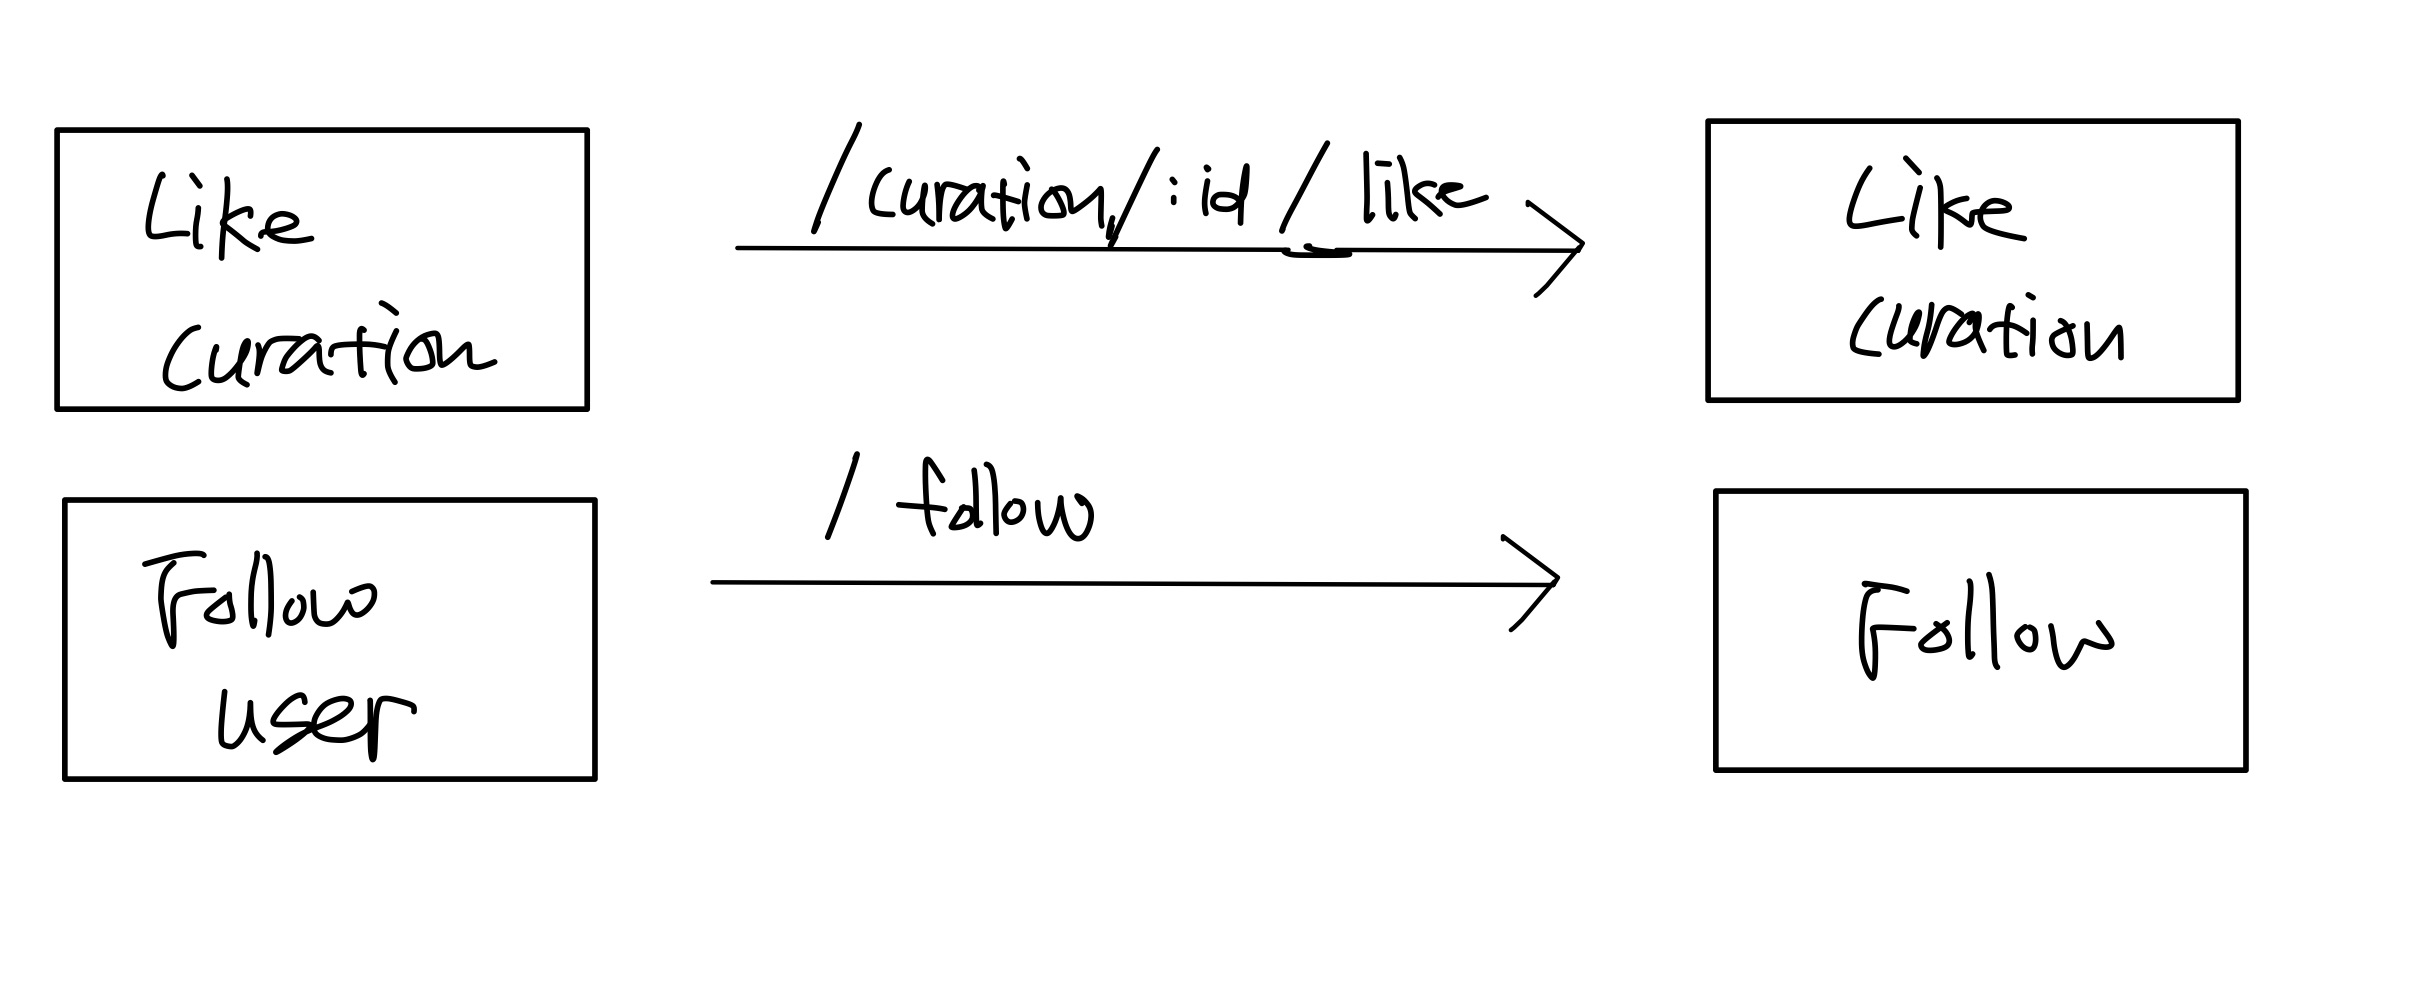 Like
Curation
/curation/:id/like
Like
Curation
Follow
user
/follow
Follow